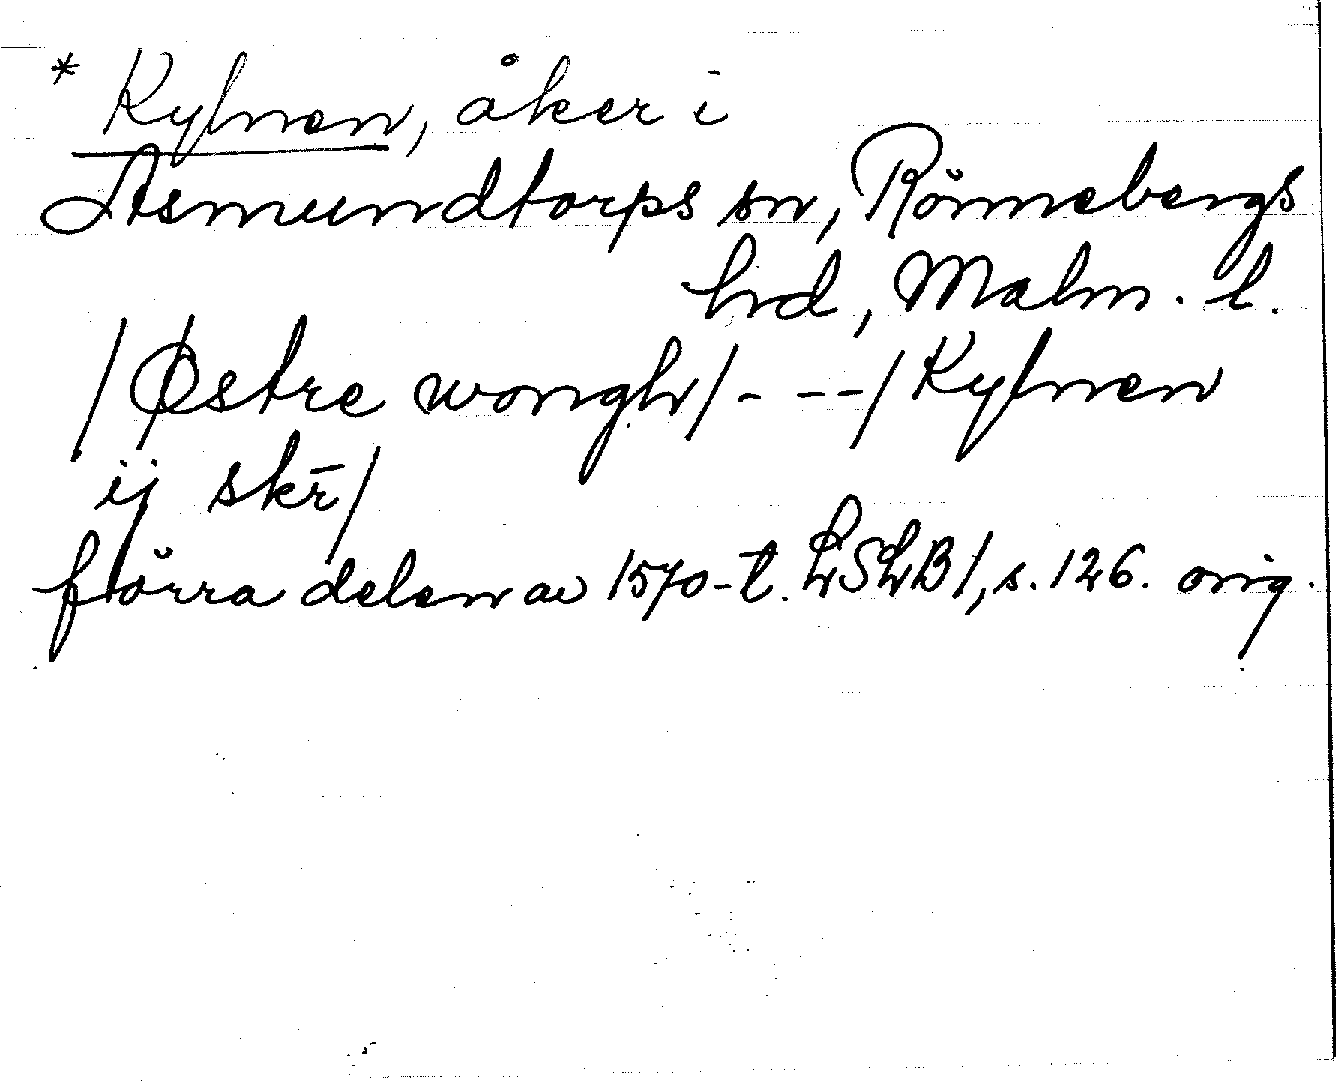 * Kylnen, åker i
Asmundtorps sn, Rönnebergs
hd, Malm. l.
/Østre wongh/- --/Kylnen
ij skr̄/
förra delen av 1570-t. LSLB 1, s. 126. orig.